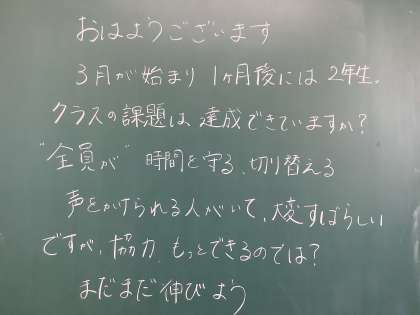 おはようございます
3月が始まり 1ヶ月後には 2年生。
クラスの課題は 達成できていますか?
"全員が" 時間を守る、切り替える
声をかけられる人がいて、大変すばらしい
ですが、協力、もっとできるのでは?
まだまだ伸びよう